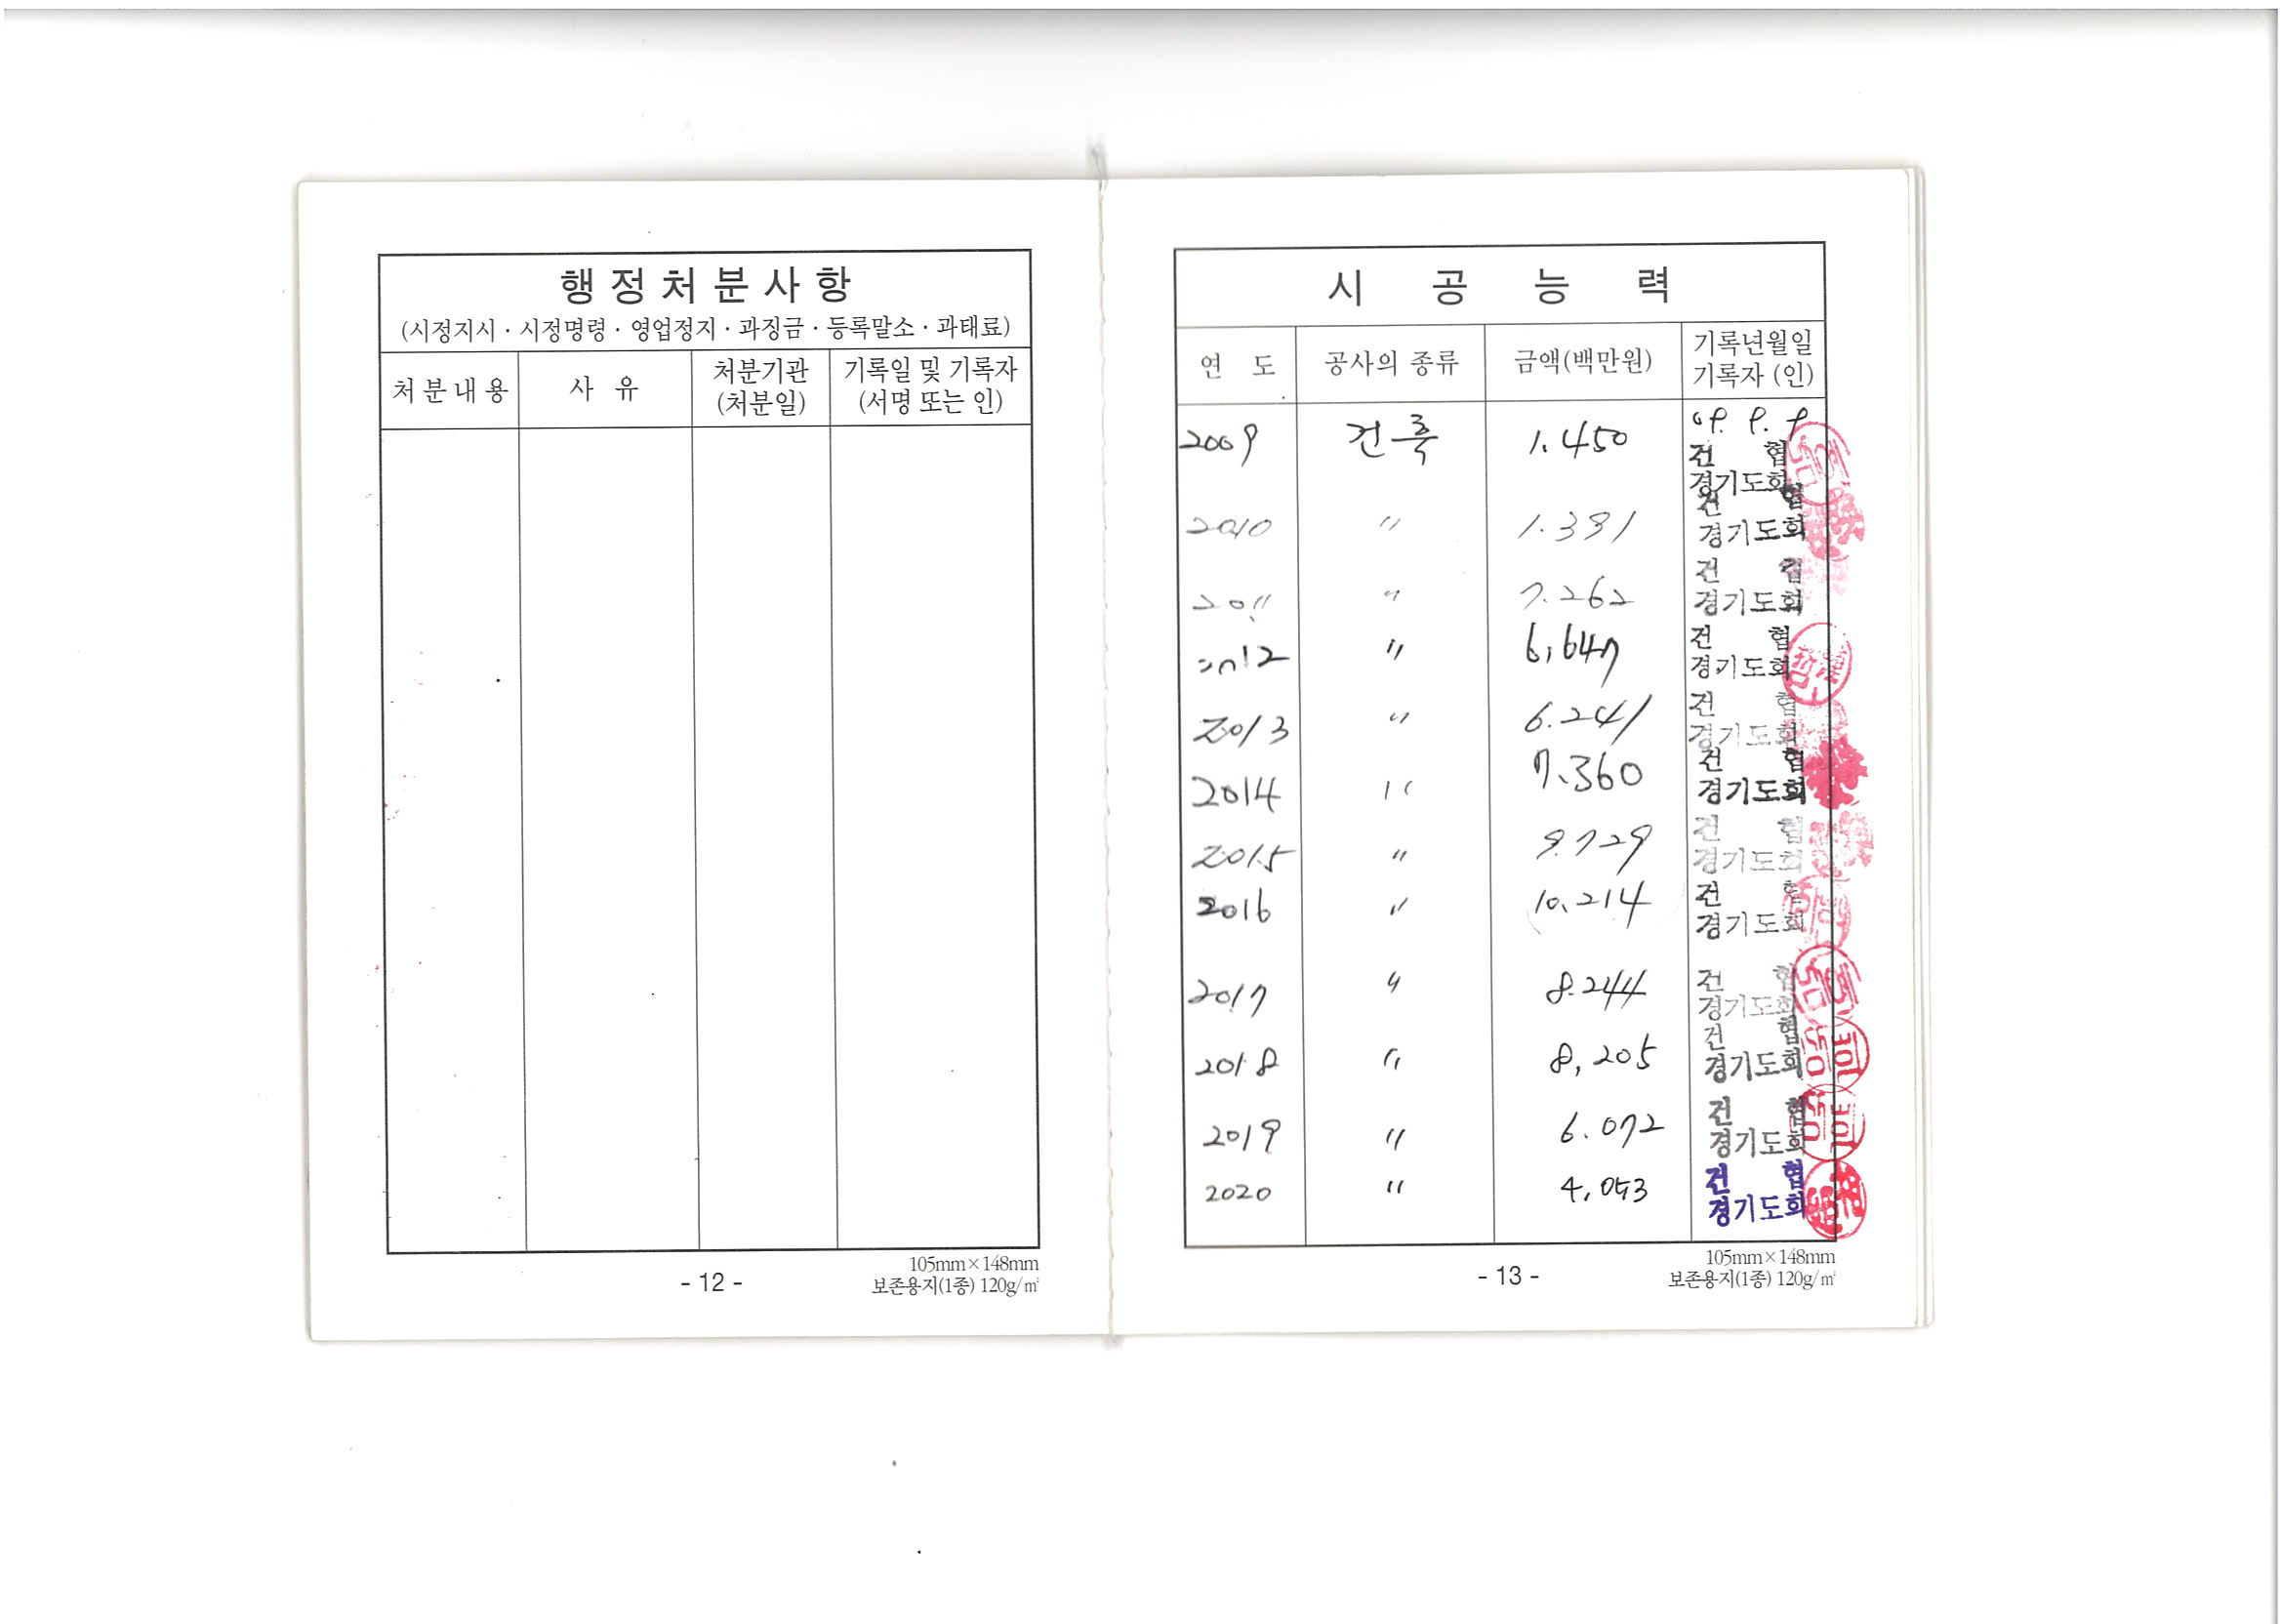 행정처분사항
(시정지시 · 시정명령 · 영업정지 · 과징금 · 등록말소 · 과태료)
처분내용 사 유 처분기관 (처분일) 기록일 및 기록자 (서명 또는 인)
105mm×148mm
- 12 -
보존용지(1종) 120g/㎡
시 공 능 력
연 도 공사의 종류 금액(백만원) 기록년월일 기록자 (인)
2009 건축 1.450
건 협
경기도회
2010 〃 1.331
건 협
경기도회
2011 〃 7.262
건 협
경기도회
2012 〃 6,647
건 협
경기도회
2013 〃 6.241
건 협
경기도회
2014 〃 7.360
건 협
경기도회
2015 〃 9.729
건 협
경기도회
2016 〃 10.214
건 협
경기도회
2017 〃 8.244
건 협
경기도회
2018 〃 8,205
건 협
경기도회
2019 〃 6.072
건 협
경기도회
2020 〃
건 협
경기도회
105mm×148mm
- 13 -
보존용지(1종) 120g/㎡